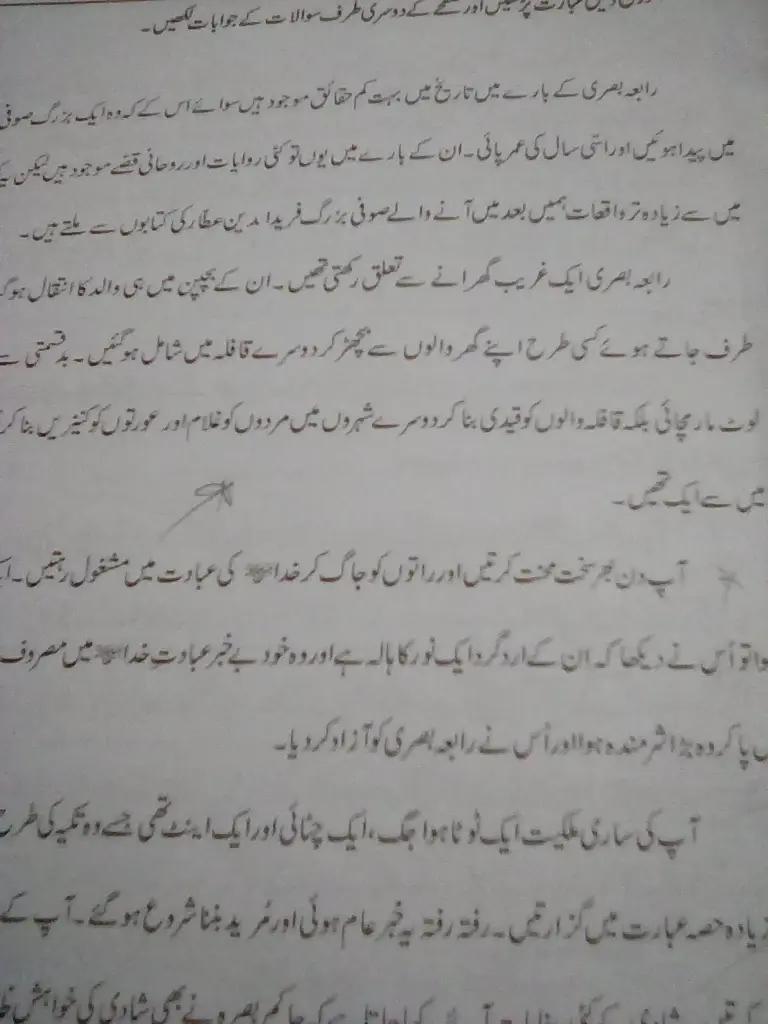 عبارت پڑھیں اور صفحے کے دوسری طرف سوالات کے جوابات لکھیں۔
رابعہ بصری کے بارے میں تاریخ میں بہت کم حقائق موجود ہیں سوائے اس کے کہ وہ ایک بزرگ صوفی
میں پیدا ہوئیں اور اسّی سال کی عمر پائی۔ ان کے بارے میں یوں تو کئی روایات اور روحانی قصّے موجود ہیں لیکن
میں سے زیادہ تر واقعات ہمیں بعد میں آنے والے صوفی بزرگ فرید الدین عطار کی کتابوں سے ملتے ہیں۔
رابعہ بصری ایک غریب گھرانے سے تعلق رکھتی تھیں۔ ان کے بچپن میں ہی والد کا انتقال
طرف جاتے ہوئے کسی طرح اپنے گھر والوں سے بچھڑ کر دوسرے قافلہ میں شامل ہو گئیں۔ بدقسمتی
لوٹ مار مچائی بلکہ قافلہ والوں کو قیدی بنا کر دوسرے شہروں میں مردوں کو غلام اور عورتوں کو کنیزیں بنا کر
میں سے ایک تھیں۔
آپ دن بھر سخت محنت کرتیں اور راتوں کو جاگ کر خدا کی عبادت میں مشغول رہتیں۔
تو اُس نے دیکھا کہ ان کے اردگرد ایک نور کا ہالہ ہے اور وہ خود بے خبر عبادتِ خدا میں مصروف
پا کر وہ بڑا شرمندہ ہوا اور اُس نے رابعہ بصری کو آزاد کر دیا۔
آپ کی ساری ملکیت ایک ٹوٹا ہوا جگ، ایک چٹائی اور ایک اینٹ تھی جسے وہ تکیہ کی طرح
زیادہ حصہ عبارت میں گزارتیں۔ رفتہ رفتہ یہ خبر عام ہوئی اور مُرید بننا شروع ہو گئے۔ آپ کے
حاکم بصرہ نے بھی شادی کی خواہش